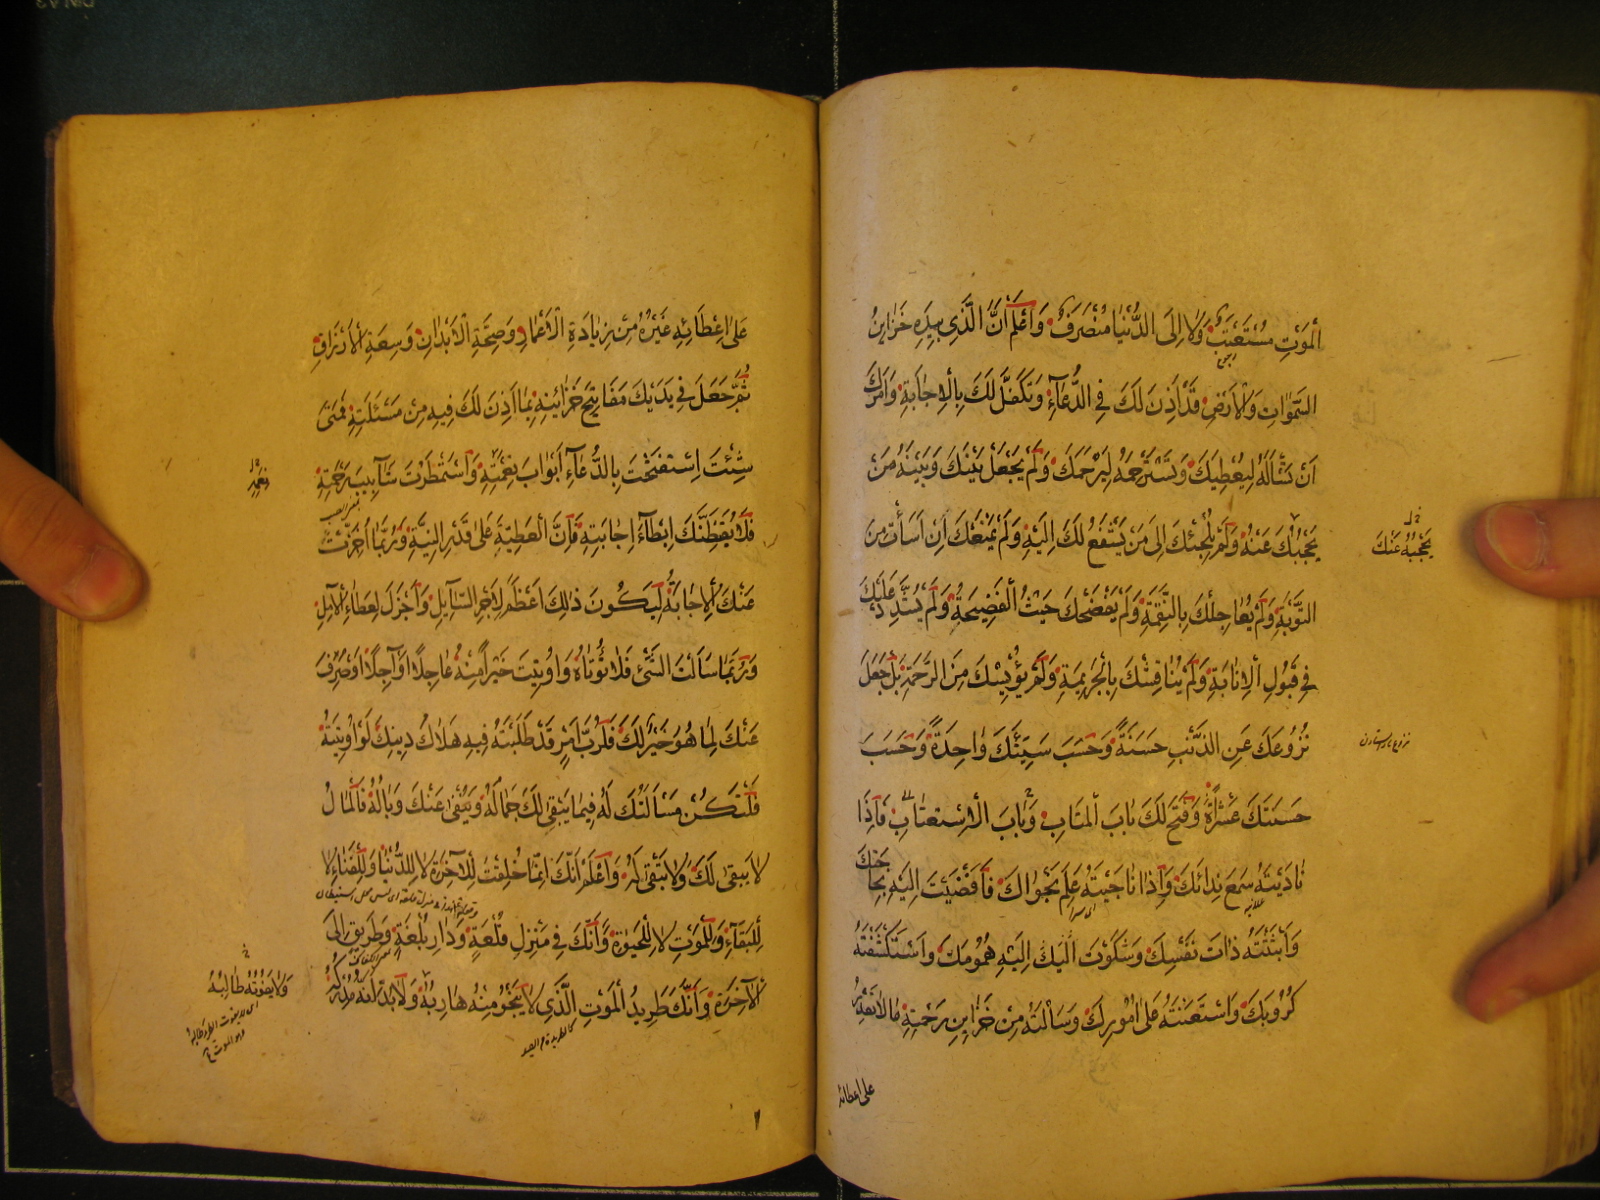 اَلْمَوْتِ مُسْتَعْتَبٌ وَلَا اِلَى الدُّنْيَا مُنْصَرَفٌ وَاعْلَمْ اَنَّ الَّذِي بِيَدِهِ خَزَائِنُ
السَّمٰوَاتِ وَالْاَرْضِ قَدْ اَذِنَ لَكَ فِي الدُّعَاءِ وَتَكَفَّلَ لَكَ بِالْاِجَابَةِ وَاَمَرَكَ
اَنْ تَسْأَلَهُ لِيُعْطِيَكَ وَتَسْتَرْحِمَهُ لِيَرْحَمَكَ وَلَمْ يَجْعَلْ بَيْنَكَ وَبَيْنَهُ مَنْ
يَحْجُبُكَ عَنْهُ وَلَمْ يُلْجِئْكَ اِلَى مَنْ يَشْفَعُ لَكَ اِلَيْهِ وَلَمْ يَمْنَعْكَ اِنْ اَسَأْتَ مِنَ
يَحْجُبُهُ عَنْكَ
التَّوْبَةِ وَلَمْ يُعَاجِلْكَ بِالنِّقْمَةِ وَلَمْ يَفْضَحْكَ حَيْثُ الْفَضِيحَةُ وَلَمْ يُشَدِّدْ عَلَيْكَ
فِي قَبُولِ الْاِنَابَةِ وَلَمْ يُنَاقِشْكَ بِالْجَرِيمَةِ وَلَمْ يُؤْيِسْكَ مِنَ الرَّحْمَةِ بَلْ جَعَلَ
نُزُوعَكَ عَنِ الذَّنْبِ حَسَنَةً وَحَسَبَ سَيِّئَتَكَ وَاحِدَةً وَحَسَبَ
حَسَنَتَكَ عَشْرًا وَفَتَحَ لَكَ بَابَ الْمَتَابِ وَبَابَ الْاِسْتِعْتَابِ فَاِذَا
نَادَيْتَهُ سَمِعَ نِدَائَكَ وَاِذَا نَاجَيْتَهُ عَلِمَ نَجْوَاكَ فَاَفْضَيْتَ اِلَيْهِ بِحَاجَتِكَ
وَاَبْثَثْتَهُ ذَاتَ نَفْسِكَ وَشَكَوْتَ اِلَيْهِ هُمُومَكَ وَاسْتَكْشَفْتَهُ
كُرُوبَكَ وَاسْتَعَنْتَهُ عَلَى اُمُورِكَ وَسَاَلْتَهُ مِنْ خَزَائِنِ رَحْمَتِهِ مَا لَا يَقْدِرُ
على اعطائه
عَلَى اِعْطَائِهِ غَيْرُهُ مِنْ زِيَادَةِ الْاَعْمَارِ وَصِحَّةِ الْاَبْدَانِ وَسِعَةِ الْاَرْزَاقِ
ثُمَّ جَعَلَ فِي يَدَيْكَ مَفَاتِيحَ خَزَائِنِهِ بِمَا اَذِنَ لَكَ فِيهِ مِنْ مَسْئَلَتِهِ فَمَتَى
شِئْتَ اسْتَفْتَحْتَ بِالدُّعَاءِ اَبْوَابَ نِعْمَتِهِ وَاسْتَمْطَرْتَ شَآبِيبَ رَحْمَتِهِ
نِعَمِهِ
فَلَا يُقَنِّطَنَّكَ اِبْطَاءُ اِجَابَتِهِ فَاِنَّ الْعَطِيَّةَ عَلَى قَدْرِ النِّيَّةِ وَرُبَّمَا اُخِّرَتْ
عَنْكَ الْاِجَابَةُ لِيَكُونَ ذٰلِكَ اَعْظَمَ لِاَجْرِ السَّائِلِ وَاَجْزَلَ لِعَطَاءِ الْآمِلِ
وَرُبَّمَا سَاَلْتَ الشَّيْءَ فَلَا تُؤْتَاهُ وَاُوتِيتَ خَيْرًا مِنْهُ عَاجِلًا اَوْ آجِلًا اَوْ صُرِفَ
عَنْكَ لِمَا هُوَ خَيْرٌ لَكَ فَلَرُبَّ اَمْرٍ قَدْ طَلَبْتَهُ فِيهِ هَلَاكُ دِينِكَ لَوْ اُوتِيتَهُ
فَلْتَكُنْ مَسْاَلَتُكَ لَهُ فِيمَا يَبْقَى لَكَ جَمَالُهُ وَيُنْفَى عَنْكَ وَبَالُهُ فَالْمَالُ
لَا يَبْقَى لَكَ وَلَا تَبْقَى لَهُ وَاعْلَمْ اَنَّكَ اِنَّمَا خُلِقْتَ لِلْآخِرَةِ لَا لِلدُّنْيَا وَلِلْفَنَاءِ لَا
لِلْبَقَاءِ وَلِلْمَوْتِ لَا لِلْحَيٰوةِ وَاَنَّكَ فِي مَنْزِلِ قُلْعَةٍ وَدَارِ بُلْغَةٍ وَطَرِيقٍ اِلَى
الْآخِرَةِ وَاَنَّكَ طَرِيدُ الْمَوْتِ الَّذِي لَا يَنْجُو مِنْهُ هَارِبُهُ وَلَا بُدَّ اَنَّهُ مُدْرِكُهُ
وَلَا يَفُوتُهُ طَالِبُهُ